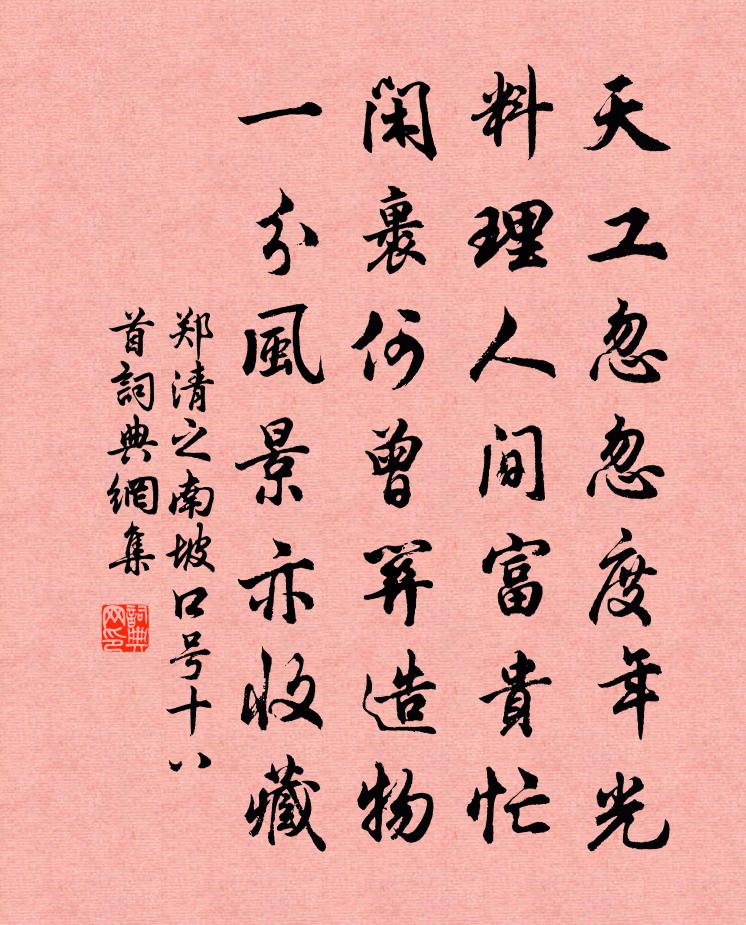 天工忽忽度年光
料理人間富貴忙
閑裏何曾算造物
一分風景亦收藏
郑清之南坡口号十八
首詞典網集
詞典
网印